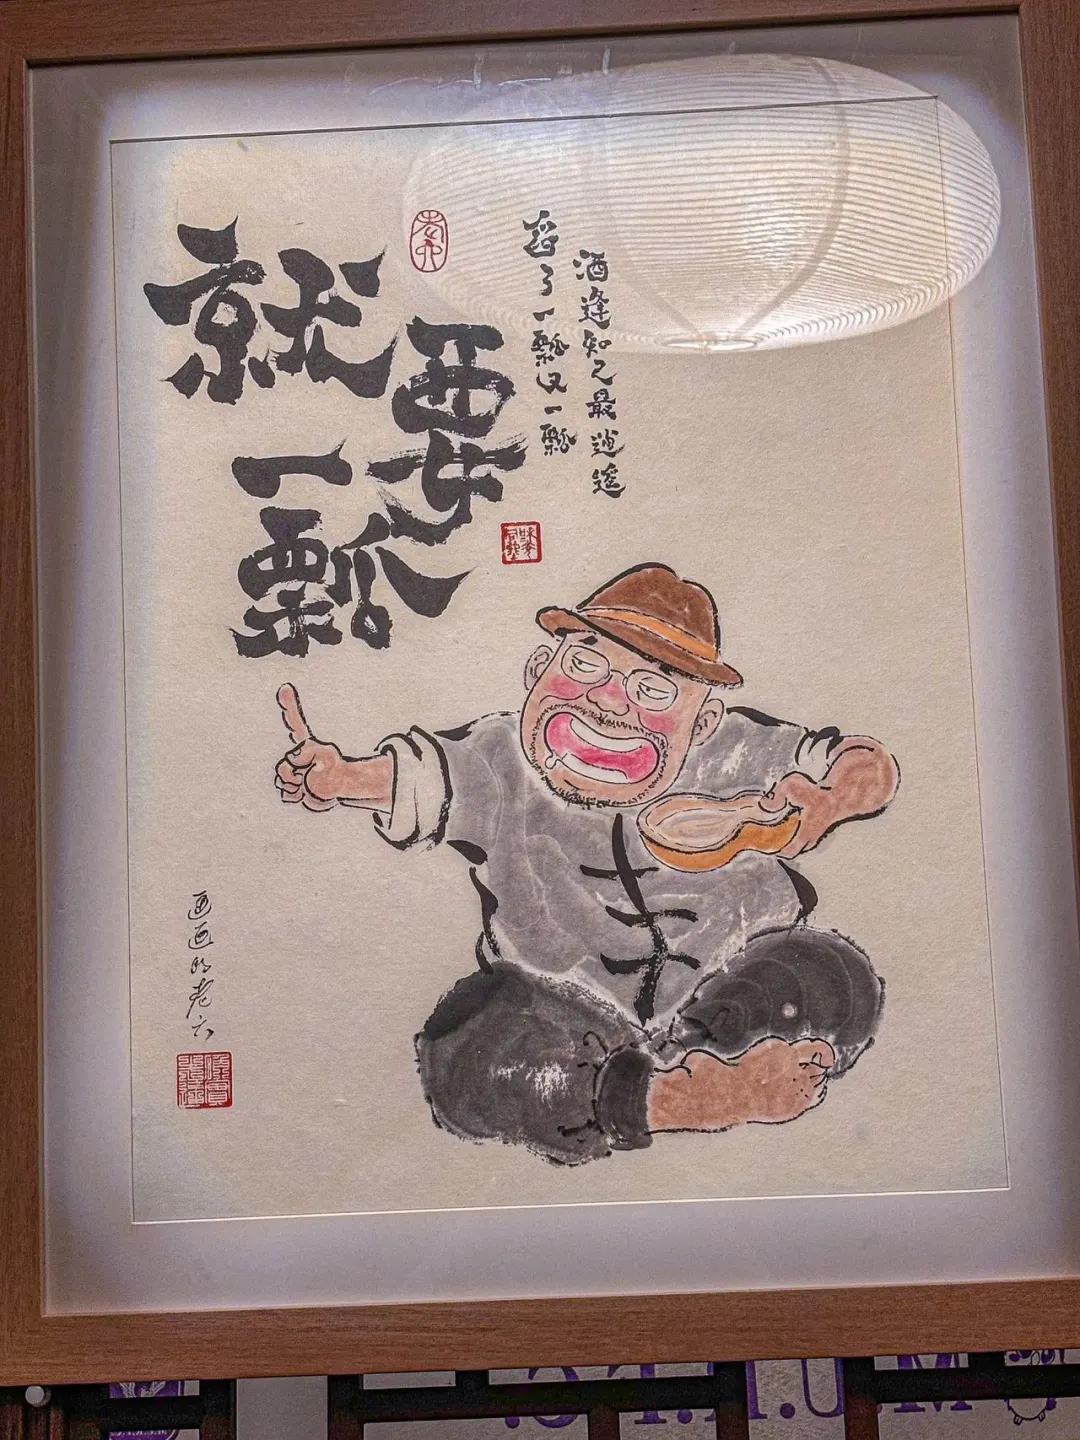 就要
一瓢
酒逢知己最逍遥
舀了一瓢又一瓢
老六
画画的老六